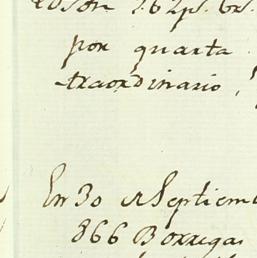 por quarta
traordinario,
En 30 de Septiem
866 Borregas